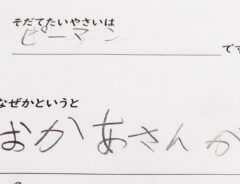 そだてたいやさいは
ピーマン
です
なぜかというと
おかあさんが